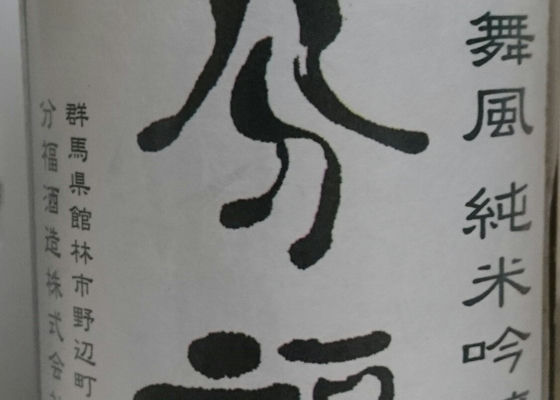 舞風 純米吟
分
群馬県館林市野辺町
分福酒造株式会